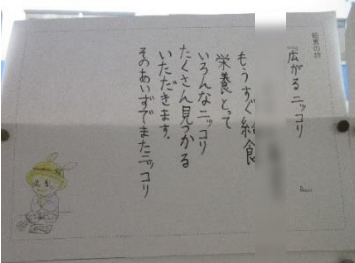 『広がるニッコリ』
もうすぐ給食
栄養とって
いろんなニッコリ
たくさん見つかる
いただきます。
そのあいずでまたニッコリ